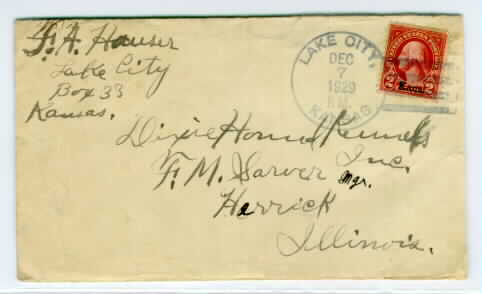 F. A. Hauser
Lake City
Box 33
Kansas.
LAKE CITY,
DEC
7
1929
KANSAS
UNITED STATES POSTAGE
2 2
Kans.
Dixie Hound Kennels
Inc.
F. M. Sarver Mgr.
Herrick
Illinois.